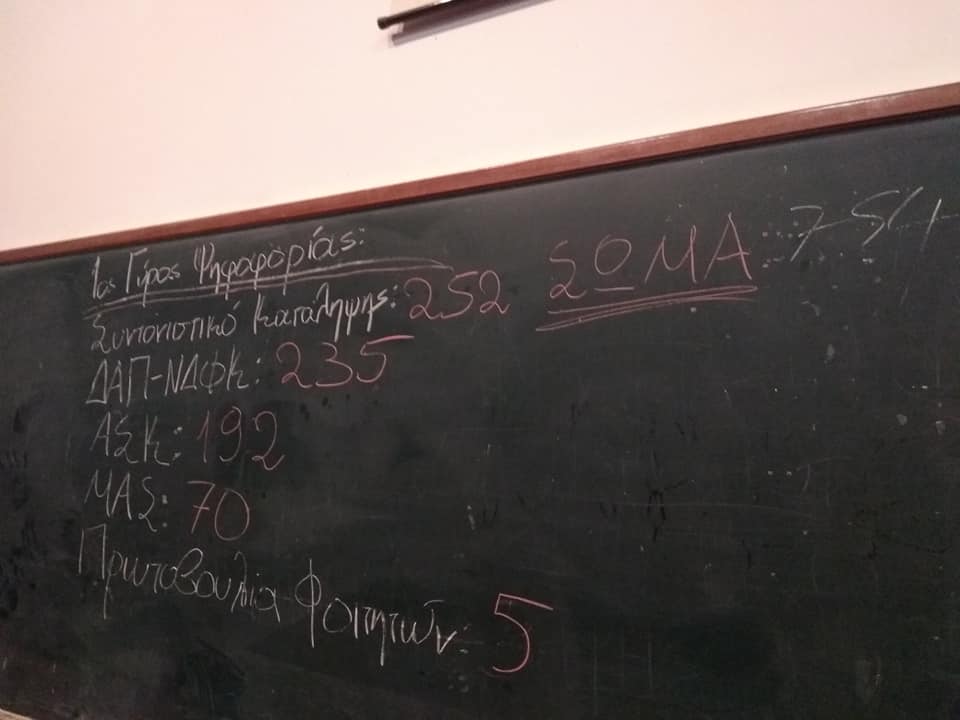 1ος Γύρος Ψηφοφορίας:
Συντονιστικό Κατάληψης: 252
ΔΑΠ-ΝΔΦΚ: 235
ΑΣΚ: 192
ΜΑΣ: 70
Πρωτοβουλία Φοιτητών: 5
ΣΩΜΑ: 754